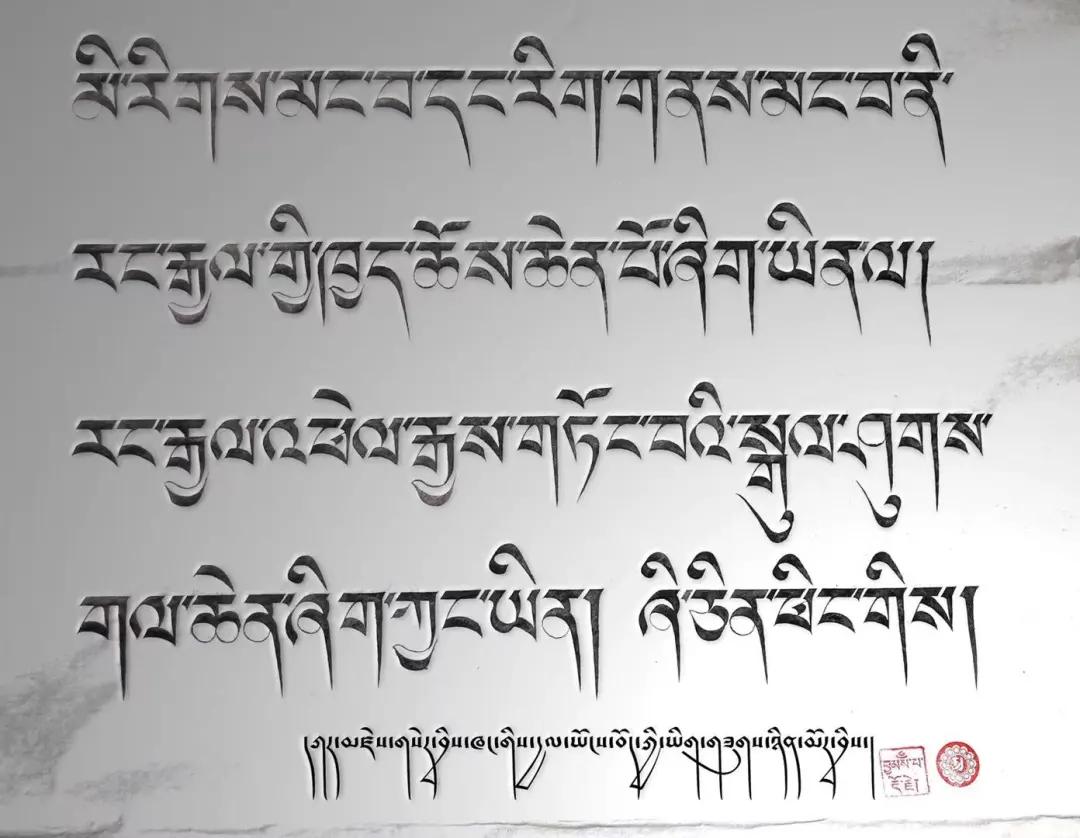 མི་རིགས་མང་བ་དང་རིག་གནས་མང་བ་ནི་
རང་རྒྱལ་གྱི་ཁྱད་ཆོས་ཆེན་པོ་ཞིག་ཡིན་ལ།
རང་རྒྱལ་འཕེལ་རྒྱས་གཏོང་བའི་སྒུལ་ཤུགས་
གལ་ཆེན་ཞིག་ཀྱང་ཡིན། ཞི་ཅིན་ཕིང་གིས།